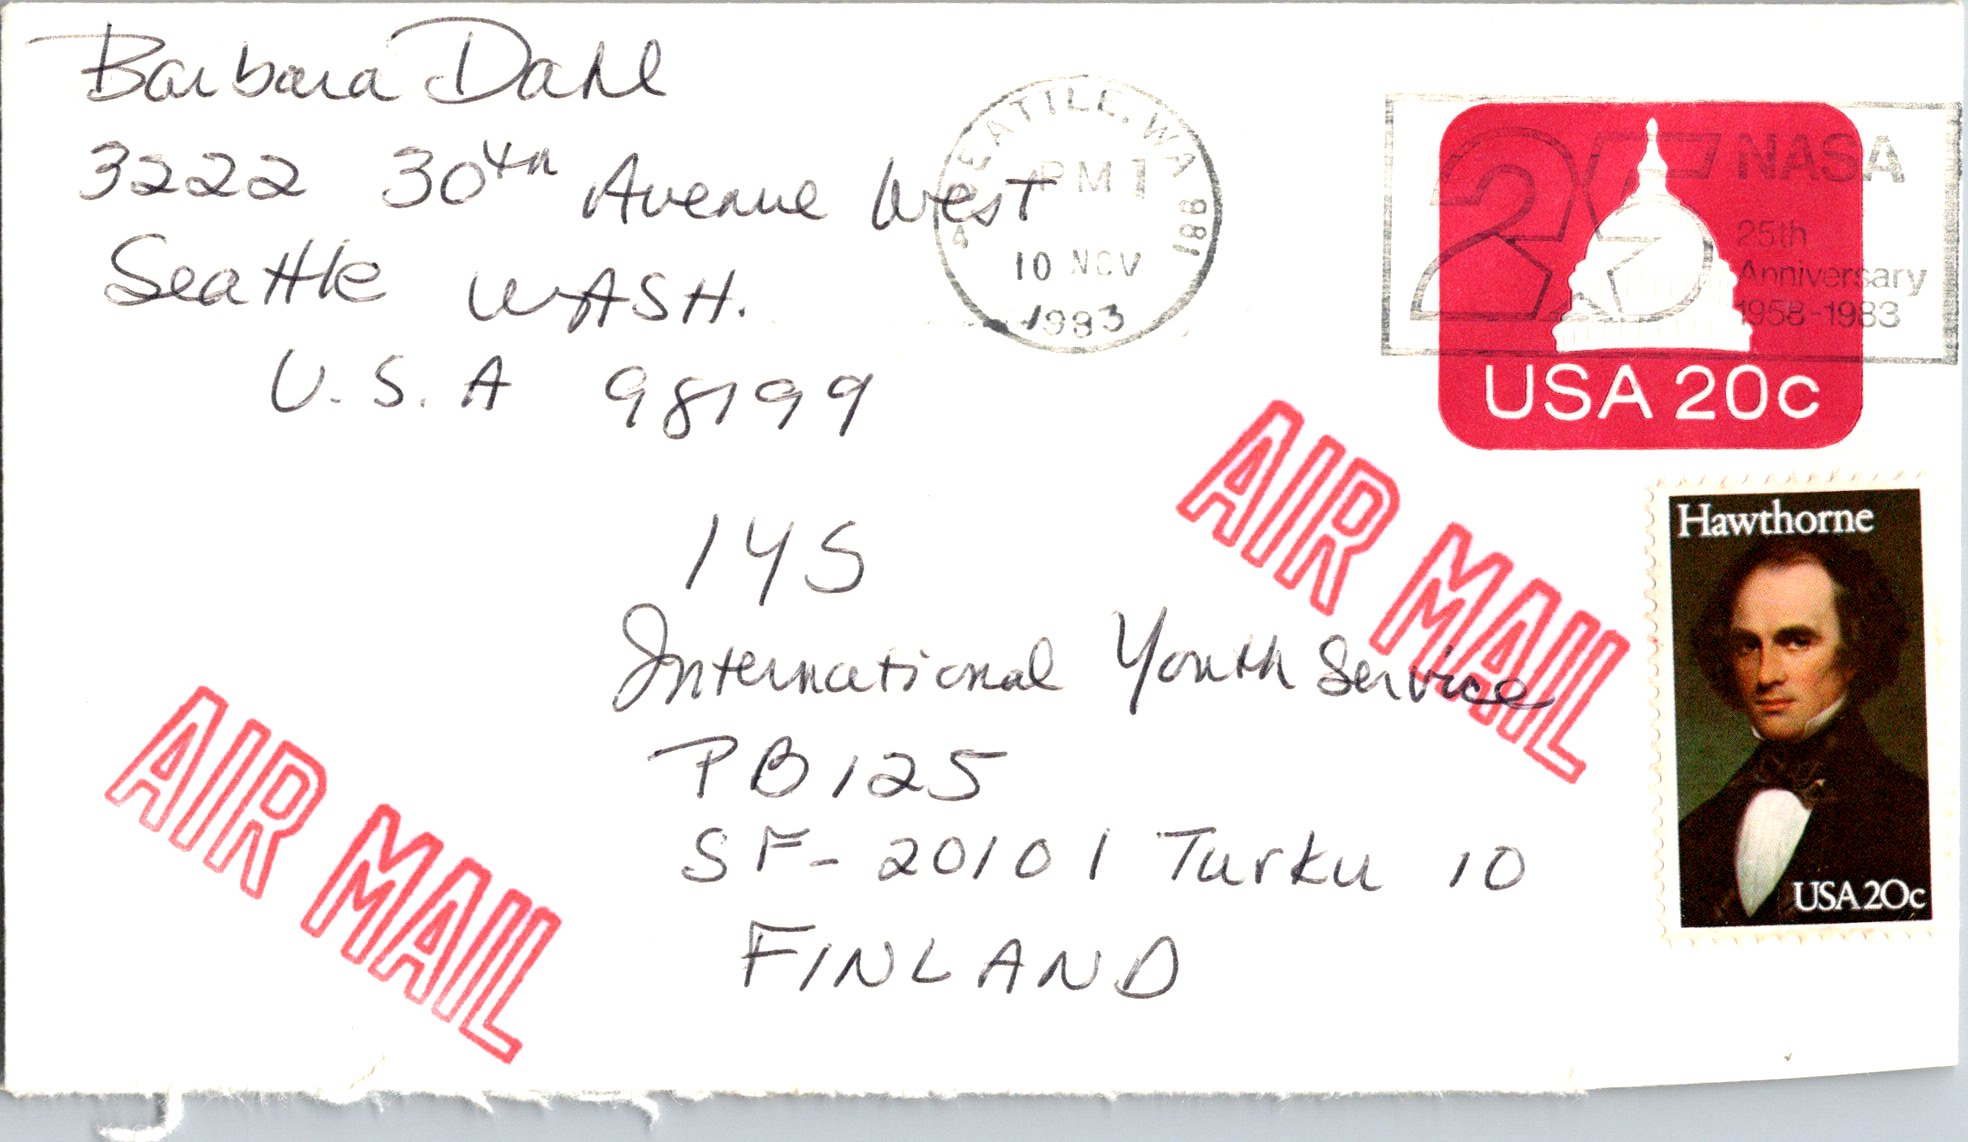 Barbara Dahl
3222 30th Avenue West
Seattle WASH.
U.S.A 98199
SEATTLE, WA 981
PM 1
10 NOV
1983
25 NASA
25th
Anniversary
1958-1983
USA 20c
AIR MAIL
IYS
International Youth Service
PB 125
SF-20101 Turku 10
FINLAND
Hawthorne
USA 20c
AIR MAIL